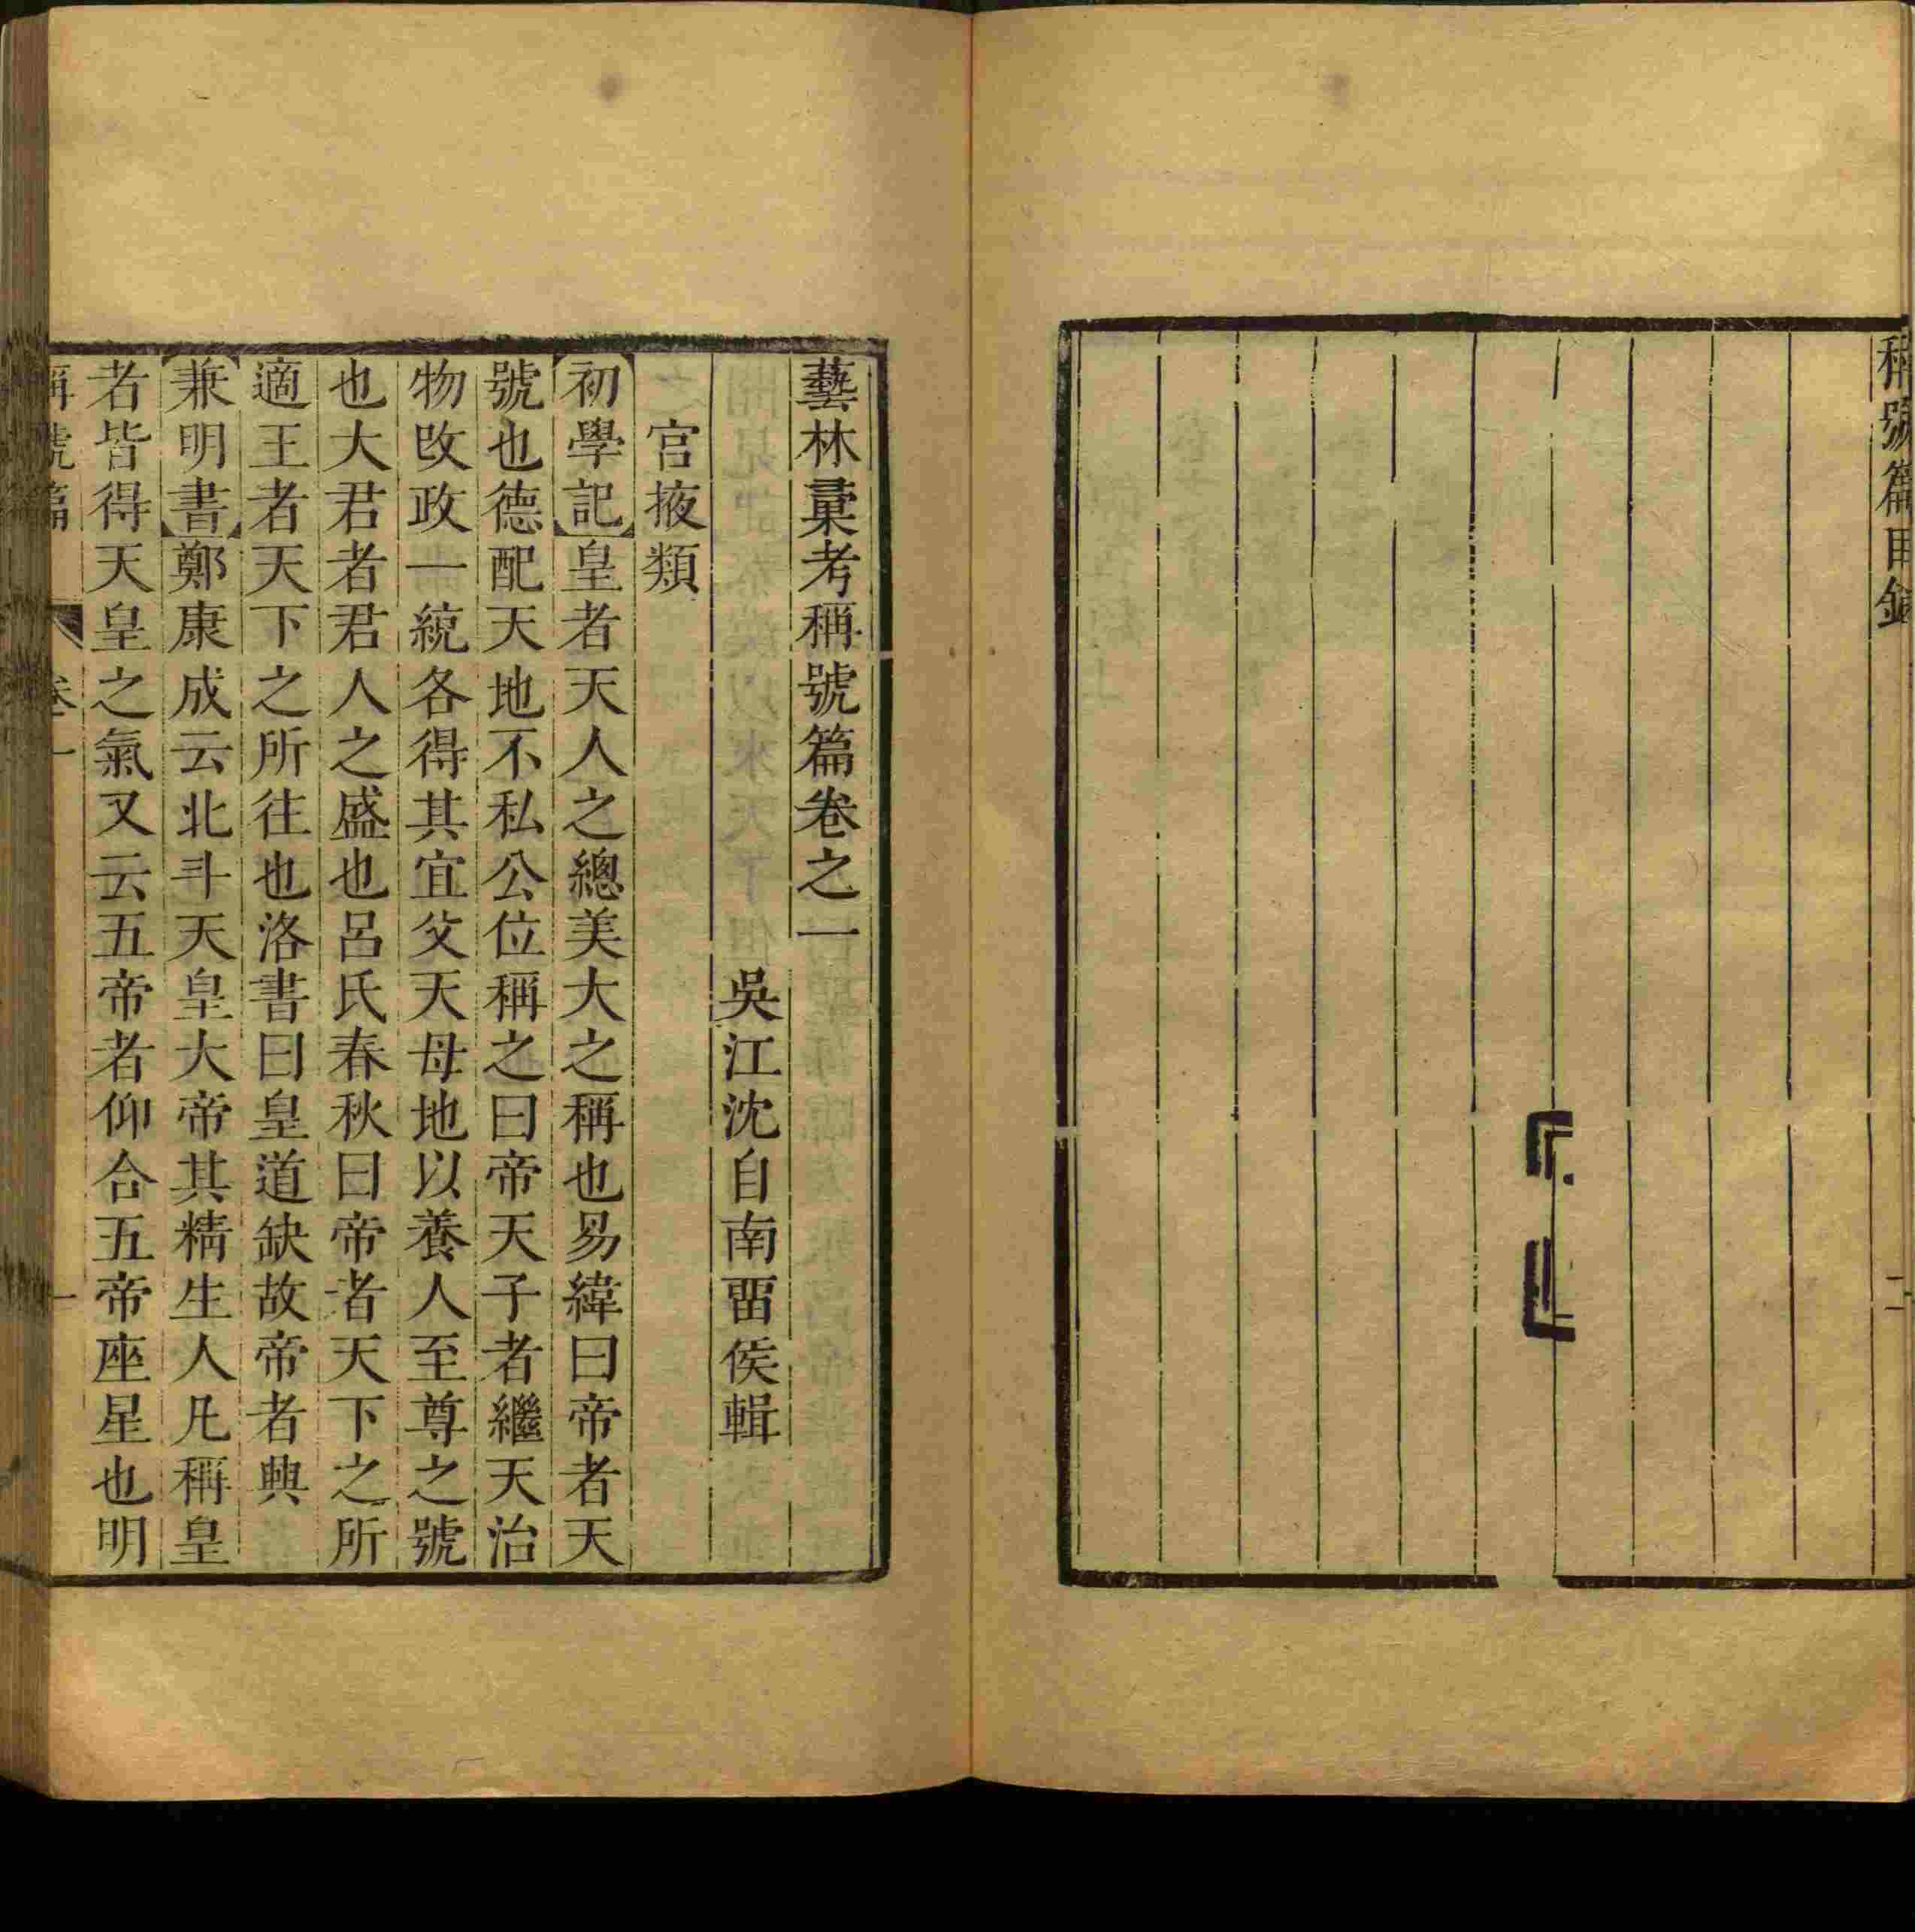 稱號篇目錄
二
藝林彙考稱號篇卷之一
吳江沈自南畱侯輯
宮掖類
【初學記】皇者天人之總美大之稱也易緯曰帝者天
號也德配天地不私公位稱之曰帝天子者繼天治
物改政一統各得其宜父天母地以養人至尊之號
也大君者君人之盛也呂氏春秋曰帝者天下之所
適王者天下之所往也洛書曰皇道缺故帝者興
【兼明書】鄭康成云北斗天皇大帝其精生人凡稱皇
者皆得天皇之氣又云五帝者仰合五帝座星也明
稱號篇
卷一
一